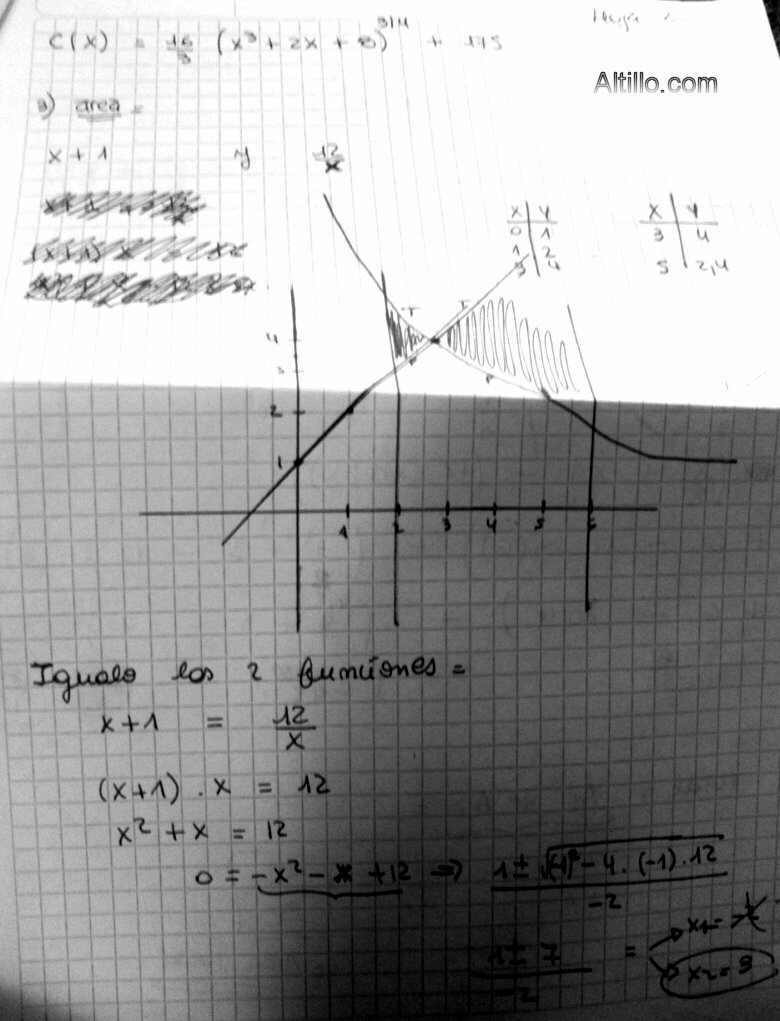 C(x) = 16/3 (x³ + 2x + 8)^3/4 + 175
Altillo.com
3) area =
x + 1 y 12/x
x | y
0 | 1
1 | 2
3 | 4
x | y
3 | 4
5 | 2,4
4
3
2
1
1 2 3 4 5 6
Igualo las 2 funciones =
x + 1 = 12/x
(x+1) . x = 12
x² + x = 12
0 = -x² - x + 12 => 1 ± √(-1)² - 4 . (-1) . 12 / -2
1 ± 7 / -2 =
x2 = 3